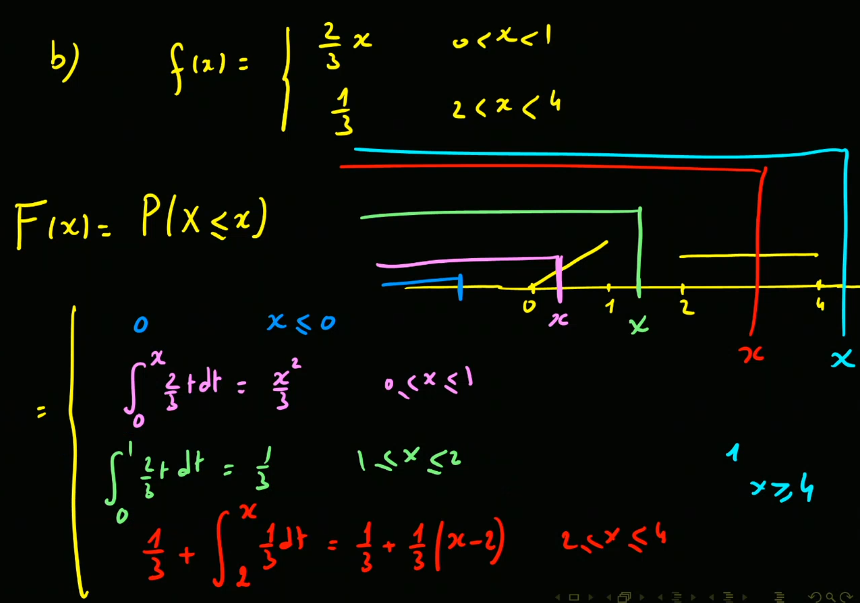 b) f(x) = { 2/3 x 0 < x < 1
1/3 2 < x < 4
F(x) = P(X ≤ x)
0 1 2 4
x x x x
= { 0 x ≤ 0
∫₀ˣ 2/3 t dt = x²/3 0 ≤ x ≤ 1
∫₀¹ 2/3 t dt = 1/3 1 ≤ x ≤ 2
1/3 + ∫₂ˣ 1/3 dt = 1/3 + 1/3 (x-2) 2 ≤ x ≤ 4
1 x ≥ 4